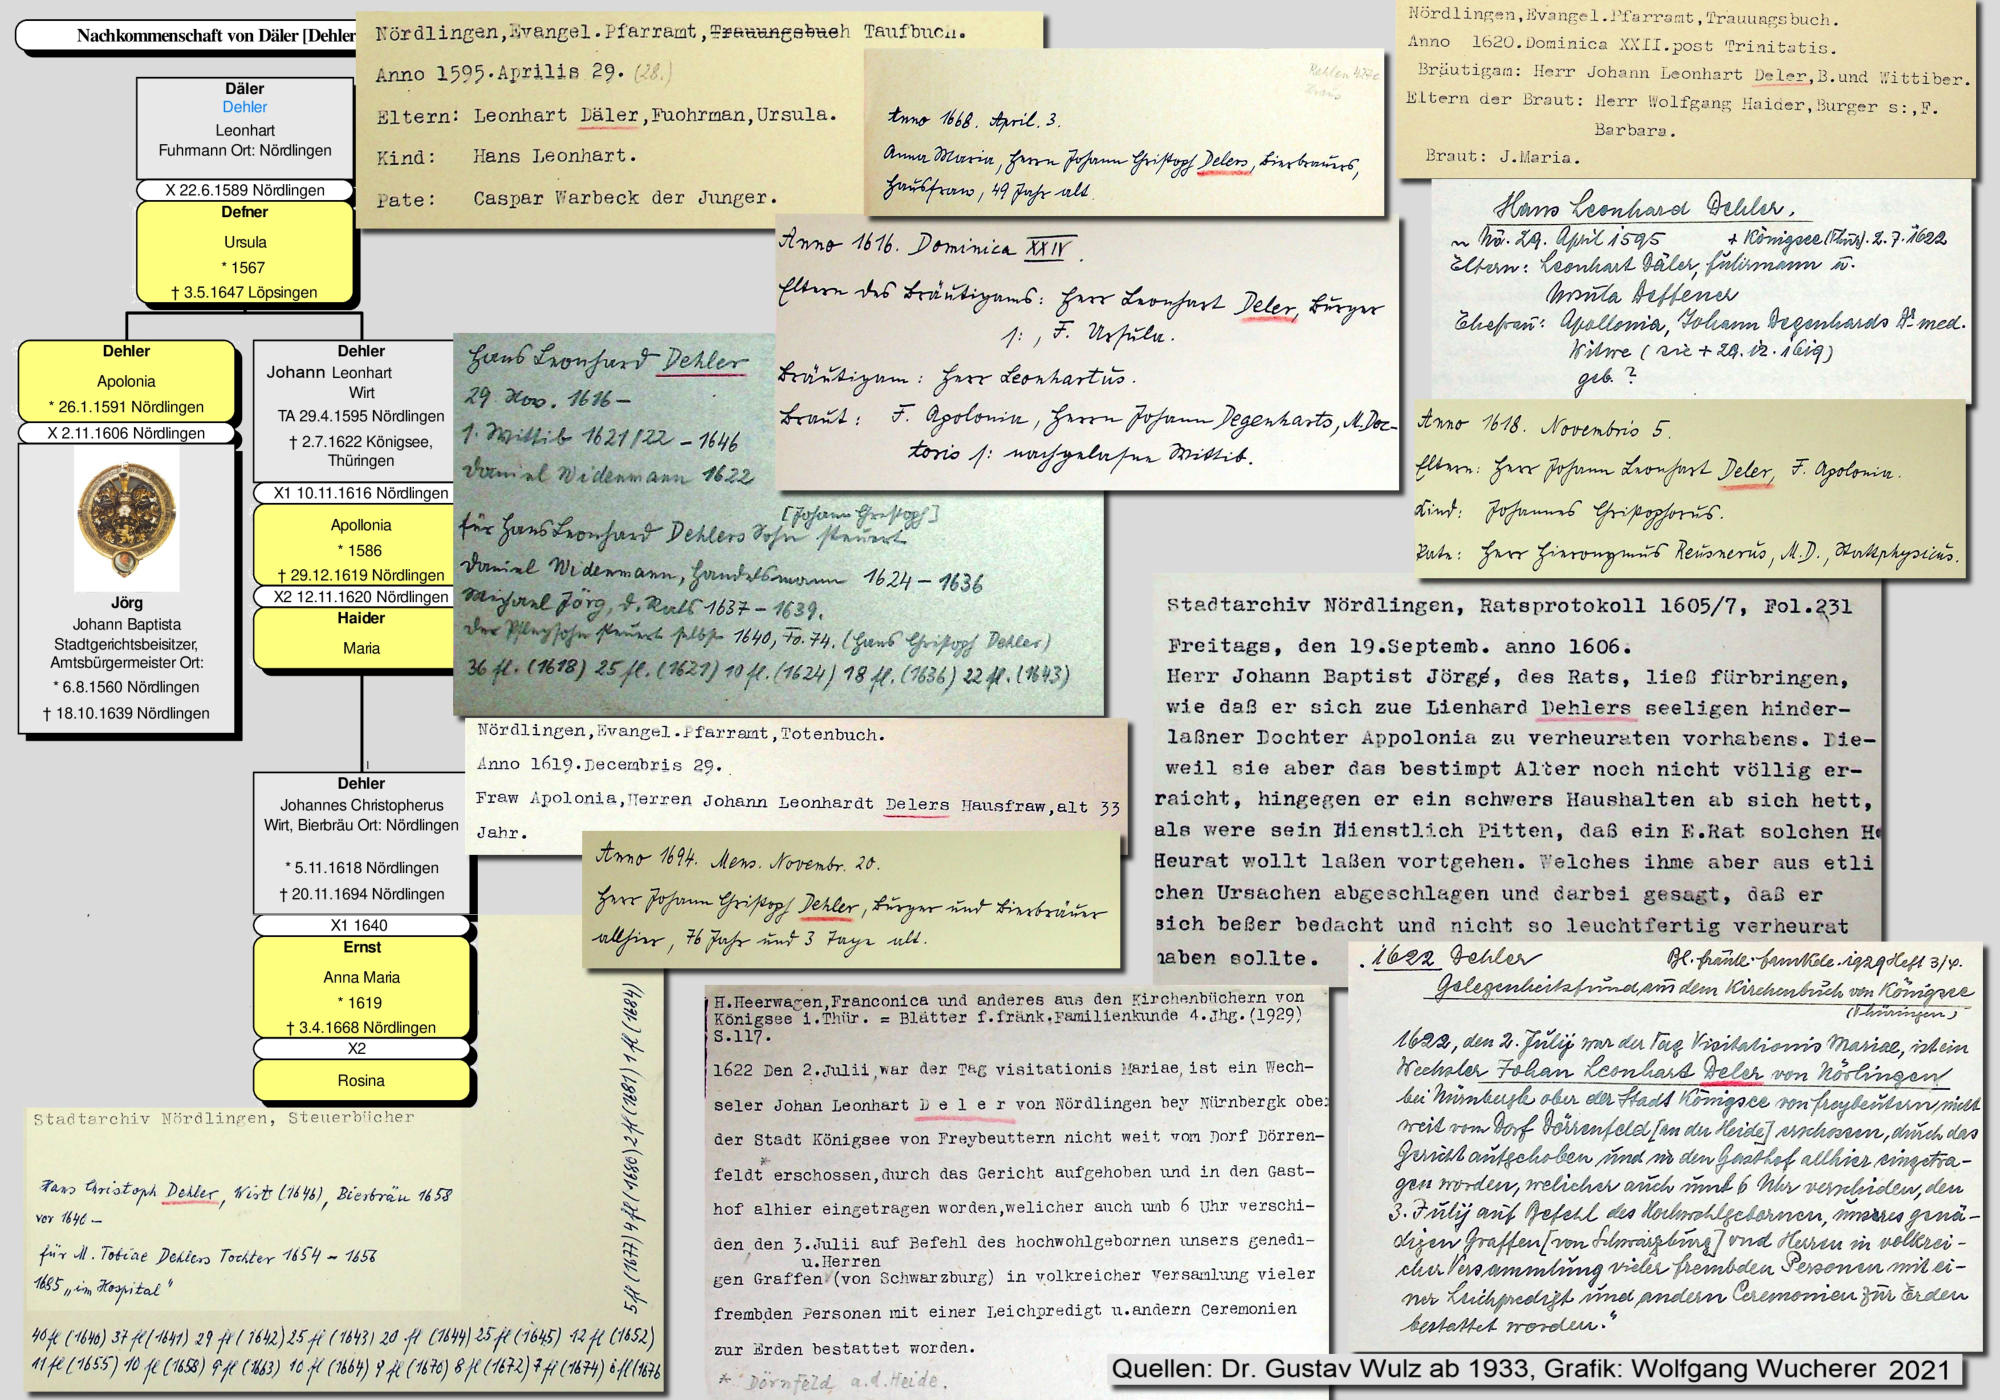 Nachkommenschaft von Däler [Dehler
Däler
Dehler
Leonhart
Fuhrmann Ort: Nördlingen
X 22.6.1589 Nördlingen
Defner
Ursula
* 1567
† 3.5.1647 Löpsingen
Dehler
Apolonia
* 26.1.1591 Nördlingen
X 2.11.1606 Nördlingen
Jörg
Johann Baptista
Stadtgerichtsbeisitzer,
Amtsbürgermeister Ort:
* 6.8.1560 Nördlingen
† 18.10.1639 Nördlingen
Dehler
Johann Leonhart
Wirt
TA 29.4.1595 Nördlingen
† 2.7.1622 Königsee,
Thüringen
X1 10.11.1616 Nördlingen
Apollonia
* 1586
† 29.12.1619 Nördlingen
X2 12.11.1620 Nördlingen
Haider
Maria
Dehler
Johannes Christopherus
Wirt, Bierbräu Ort: Nördlingen
* 5.11.1618 Nördlingen
† 20.11.1694 Nördlingen
X1 1640
Ernst
Anna Maria
* 1619
† 3.4.1668 Nördlingen
X2
Rosina
Nördlingen,Evangel.Pfarramt,Trauungsbuch Taufbuch.
Anno 1595.Aprilis 29. (28.)
Eltern: Leonhart Däler,Fuohrman,Ursula.
Kind: Hans Leonhart.
Pate: Caspar Warbeck der Junger.
Anno 1668. April. 3.
Anna Maria, Herrn Johann Christoph Delers, Bierbrauers,
Hausfraw, 49 Jahr alt.
Nördlingen,Evangel.Pfarramt,Trauungsbuch.
Anno 1620.Dominica XXII.post Trinitatis.
Bräutigam: Herr Johann Leonhart Deler,B.und Wittiber.
Eltern der Braut: Herr Wolfgang Haider,Burger s:,F.
Barbara.
Braut: J.Maria.
Anno 1616. Dominica XXIV.
Eltern des Bräutigams: Herr Leonhart Deler, Burger
s: , F. Ursula.
Bräutigam: Herr Leonhartus.
Braut: F. Apolonia, Herrn Johann Degenharts, M.Doc-
toris s: nachgelasne Wittib.
Hans Leonhard Dehler.
~ Nö. 29. April 1595 + Königsee (Thür). 2.7.1622
Eltern: Leonhart Däler, Fuhrmann u.
Ursula Deffener
Ehefrau: Apollonia, Johann Degenhards Dr med.
Witwe (sie + 29.12.1619)
geb. ?
Hans Leonhard Dehler
29 Nov. 1616 –
1. Wittib 1621/22 – 1646
Daniel Widenmann 1622
[Johann Christoph]
für Hans Leonhard Dehlers Sohn steuert
Daniel Widenmann, Handelsmann 1624 – 1636
Michael Jörg, d. Rats 1637 – 1639.
Der Pflegsohn steuert selbst 1640, Fo. 74. (Hans Christoph Dehler)
36 fl. (1618) 25 fl. (1621) 10 fl. (1624) 18 fl. (1636) 22 fl. (1643)
Anno 1618. Novembris 5.
Eltern: Herr Johann Leonhart Deler, F. Apolonia.
Kind: Johannes Christophorus.
Pate: Herr Hieronymus Reusnerus, M.D., Stattphysicus.
Stadtarchiv Nördlingen, Ratsprotokoll 1605/7, Fol.231
Freitags, den 19.Septemb. anno 1606.
Herr Johann Baptist Jörge, des Rats, ließ fürbringen,
wie daß er sich zue Lienhard Dehlers seeligen hinder-
laßner Dochter Appolonia zu verheuraten vorhabens. Die-
weil sie aber das bestimpt Alter noch nicht völlig er-
raicht, hingegen er ein schwers Haushalten ab sich hett,
als were sein Dienstlich Pitten, daß ein E.Rat solchen He
Heurat wollt laßen vortgehen. Welches ihme aber aus etli
chen Ursachen abgeschlagen und darbei gesagt, daß er
sich beßer bedacht und nicht so leuchtfertig verheurat
haben sollte.
Nördlingen,Evangel.Pfarramt,Totenbuch.
Anno 1619.Decembris 29.
Fraw Apolonia,Herren Johann Leonhardt Delers Hausfraw,alt 33
Jahr.
Anno 1694. Mens. Novembr. 20.
Herr Johann Christoph Dehler, Burger und Bierbräuer
allhier, 76 Jahr und 3 Tage alt.
H.Heerwagen,Franconica und anderes aus den Kirchenbüchern von
Königsee i.Thür. = Blätter f.fränk.Familienkunde 4.Jhg.(1929)
S.117.
1622 Den 2.Julii war der Tag visitationis Mariae, ist ein Wech-
seler Johan Leonhart Deler von Nördlingen bey Nürnbergk obe
der Stadt Königsee von Freybeuttern nicht weit vom Dorf Dörren-
feldt* erschossen,durch das Gericht aufgehoben und in den Gast-
hof alhier eingetragen worden,welicher auch umb 6 Uhr verschi-
den den 3.Julii auf Befehl des hochwohlgebornen unsers genedi-
u.Herren
gen Graffen (von Schwarzburg) in volkreicher Versamlung vieler
frembden Personen mit einer Leichpredigt u.andern Ceremonien
zur Erden bestattet worden.
* Dörnfeld a.d.Heide.
1622 Dehler Bl. fränk. Famkde. 1929 Heft 3/4.
Gelegenheitsfund aus dem Kirchenbuch von Königsee
(Thüringen)
1622, den 2. Julij war der Tag Visitationis Mariae, ist ein
Wechsler Johan Leonhart Deler von Nörlingen
bei Nürnbergk ober der Stadt Königsee von freybeutern, nicht
weit vom Dorf Dörrenfeld [an der Heide] erschossen, durch das
Gericht aufgehoben und in den Gasthof allhier eingetra-
gen worden, welicher auch umb 6 Uhr verschiden, den
3. Julij auf Befehl des Hochwohlgebornen, unseres genä-
digen Graffen [von Schwarzburg] und Herren in volkrei-
cher Versammlung vieler frembden Personen mit ei-
ner Leichpredigt und andern Ceremonien zur Erden
bestattet worden."
Stadtarchiv Nördlingen, Steuerbücher
Hans Christoph Dehler, Wirt (1646), Bierbräu 1658
vor 1640 –
für M. Tobiae Dehlers Tochter 1654 – 1656
1685 „im Hospital"
40 fl (1640) 37 fl (1641) 29 fl (1642) 25 fl (1643) 20 fl (1644) 25 fl (1645) 12 fl (1652)
11 fl (1655) 10 fl (1658) 9 fl (1663) 10 fl (1664) 9 fl (1670) 8 fl (1672) 7 fl (1674) 6 fl (1676
5 fl (1677) 4 fl (1680) 2 fl (1681) 1 fl (1684)
Quellen: Dr. Gustav Wulz ab 1933, Grafik: Wolfgang Wucherer 2021